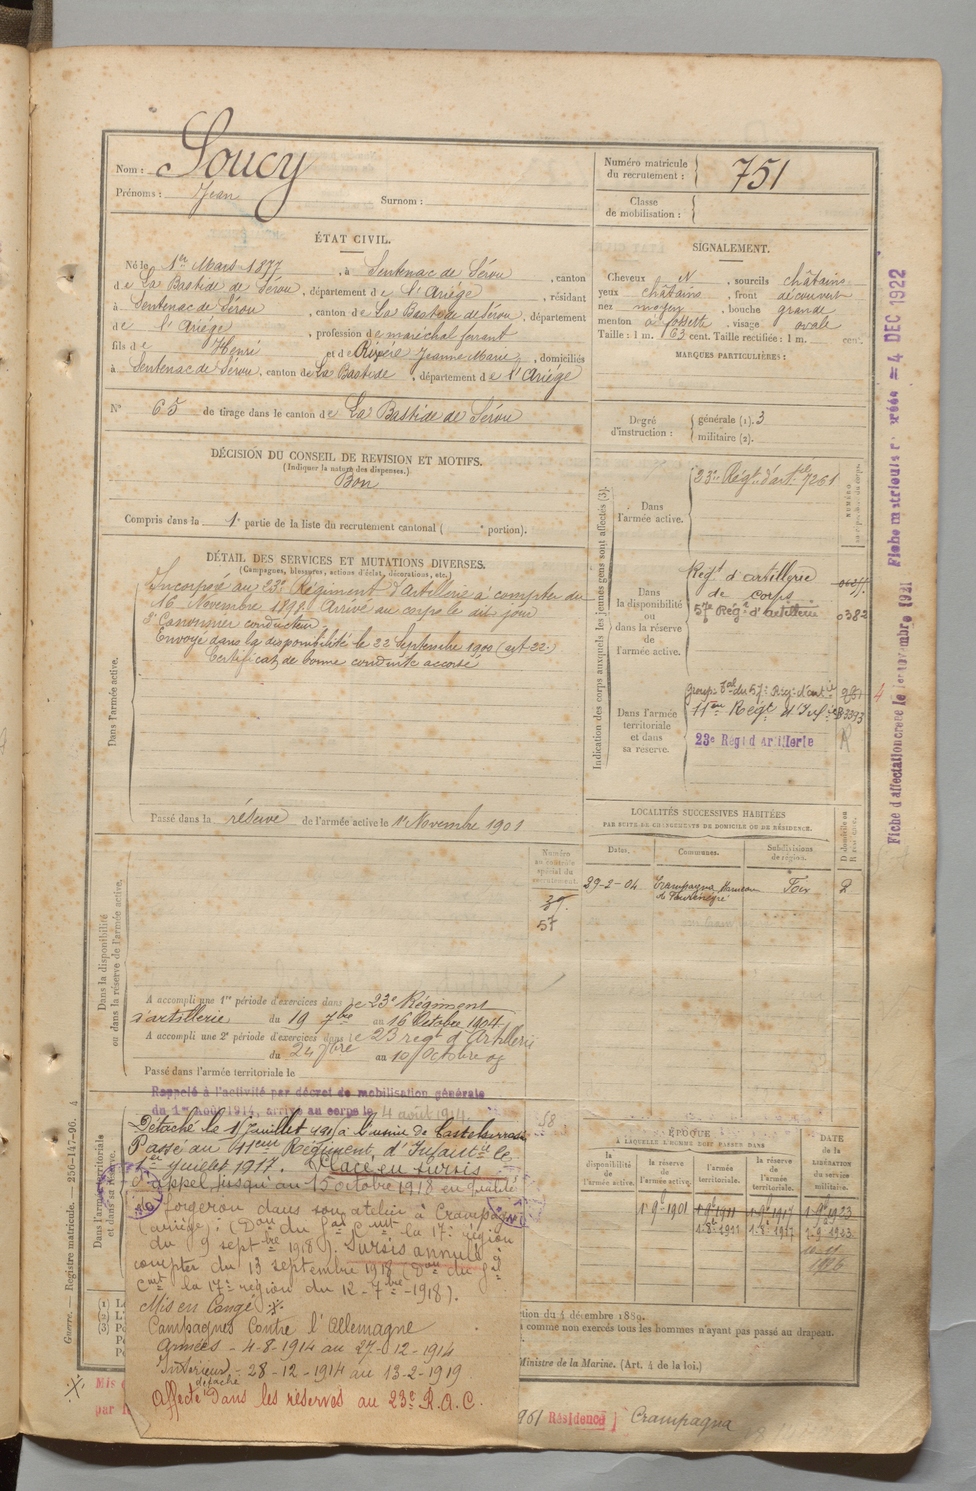 Nom : Soucy
Prénoms : Jean Surnom :
Numéro matricule du recrutement : 751
Classe de mobilisation :
ÉTAT CIVIL.
Né le 1er Mars 1877, à Sentenac de Sérou, canton
de La Bastide de Sérou, département de l'Ariège, résidant
à Sentenac de Sérou, canton de La Bastide de Sérou, département
de l'Ariège, profession de maréchal ferrant
fils de Henri et de Rivière Jeanne Marie, domiciliés
à Sentenac de Sérou, canton de La Bastide, département de l'Ariège
N° 65 de tirage dans le canton de La Bastide de Sérou
SIGNALEMENT.
Cheveux N, sourcils châtains
yeux châtains, front découvert
nez moyen, bouche grande
menton à fossette, visage ovale
Taille : 1 m. 63 cent. Taille rectifiée : 1 m. cent.
MARQUES PARTICULIÈRES :
Degré d'instruction : générale (1). 3
militaire (2).
DÉCISION DU CONSEIL DE REVISION ET MOTIFS.
(Indiquer la nature des dispenses.)
Bon
Compris dans la 1e partie de la liste du recrutement cantonal ( e portion).
DÉTAIL DES SERVICES ET MUTATIONS DIVERSES.
(Campagnes, blessures, actions d'éclat, décorations, etc.)
Dans l'armée active.
Incorporé au 23e Régiment d'artillerie à compter du
16 Novembre 1898. Arrivé au corps le dit jour
2e Canonnier conducteur
Envoyé dans la disponibilité le 22 Septembre 1900 (art 22.)
Certificat de bonne conduite accordé
Passé dans la réserve de l'armée active le 1er Novembre 1901
Indication des corps auxquels les jeunes gens sont affectés (3).
NUMÉRO
Dans l'armée active.
23e Régt d'artie 7251
Dans la disponibilité ou dans la réserve de l'armée active.
Régt d'artillerie
de corps
57e Régt d'artillerie 0382
Dans l'armée territoriale et dans sa réserve.
11eme Régt d'Infie
23e Régt d'Artillerie
R
4
LOCALITÉS SUCCESSIVES HABITÉES
PAR SUITE DE CHANGEMENTS DE DOMICILE OU DE RÉSIDENCE.
Dates. Communes. Subdivisions de région. D domicile ou R résidence.
29-2-04 Crampagna Foix R
Dans la disponibilité ou dans la réserve de l'armée active.
Numéro au contrôle spécial du recrutement.
57
A accompli une 1re période d'exercices dans le 23e Régiment
d'artillerie du 19 7bre au 16 Octobre 1904
A accompli une 2e période d'exercices dans le 23 regt d'Artillerie
du 24 7bre au 10 Octobre 07
Passé dans l'armée territoriale le
Dans l'armée territoriale et dans sa réserve.
Rappelé à l'activité par décret de mobilisation générale
du 1er Août 1914, arrivé au corps le 4 août 1914.
Détaché le 1 Juillet 1915 à l'usine de Castelsarrasin
Passé au 11eme Régiment d'Infantie le
1er Juillet 1917. Placé en sursis
d'appel jusqu'au 15 octobre 1918 en qualité
de forgeron dans son atelier à Crampagna
(ariège) : (Don du Gal Cmdt la 17e région
du 9 septbre 1918). Sursis annulé à
compter du 13 septembre 1918 (Don du Gal
Cmdt la 17e région du 12-7bre-1918).
Mis en Congé
Campagnes Contre l'Allemagne
Armées - 4-8-1914 au 27-12-1914
Intérieur - 28-12-1914 au 13-2-1919
détaché
Affecté dans les réserves au 23e R.A.C.
58
ÉPOQUE
À LAQUELLE L'HOMME DOIT PASSER DANS
la disponibilité de l'armée active.
la réserve de l'armée active.
l'armée territoriale.
la réserve de l'armée territoriale.
DATE de la LIBÉRATION du service militaire.
1er 9bre 1901 1er 9bre 1911 1er 9bre 1917 1er 9bre 1923
1926
4 décembre 1889.
comme non exercés tous les hommes n'ayant pas passé au drapeau.
Ministre de la Marine. (Art. 4 de la loi.)
Résidence Crampagna
Guerre. — Registre matricule. — 256-147-96. 4
Fiche d'affectation créée le 1er novembre 1921 Fiche matricule créée = 4 DEC 1922